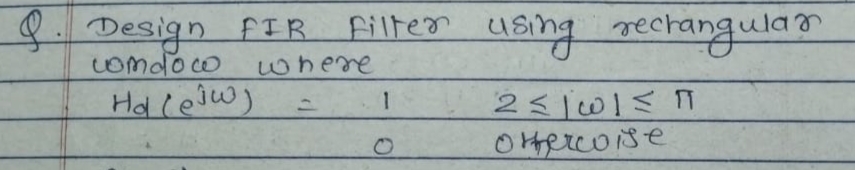 Q. Design FIR Filter using rectangular
window where
Hd(e^jω) = 1 2 ≤ |ω| ≤ π
0 otherwise